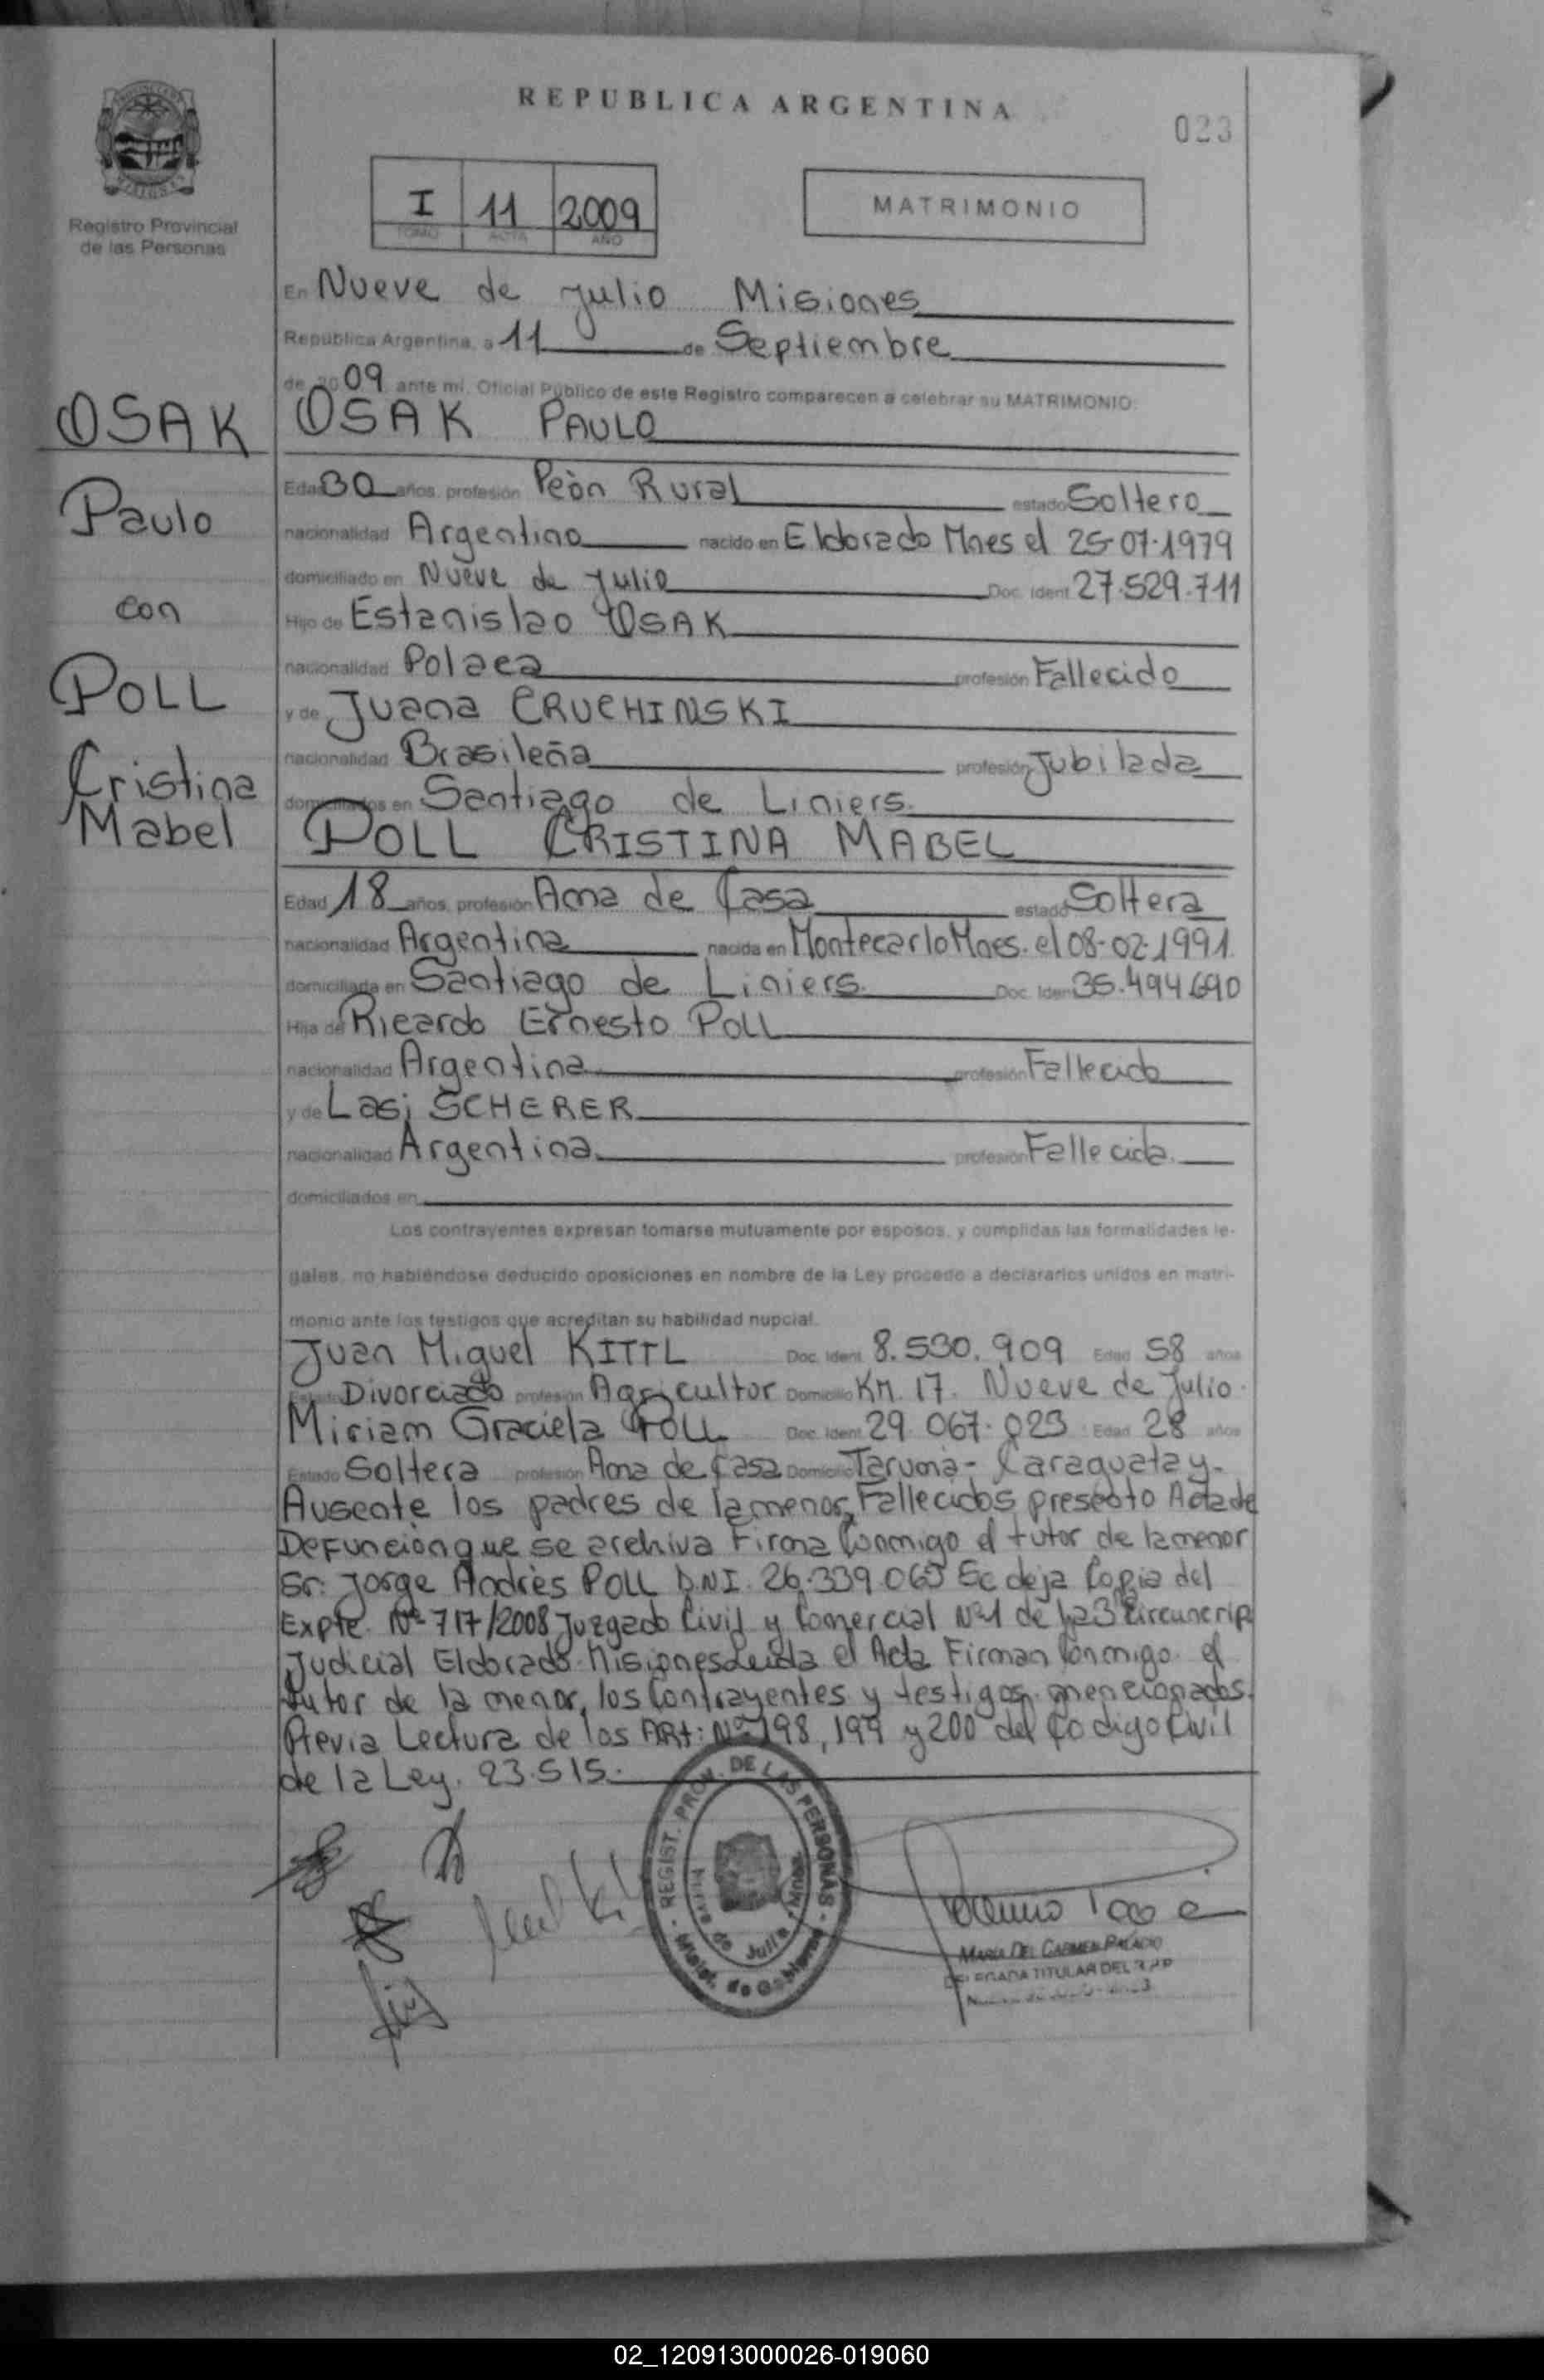 REPUBLICA ARGENTINA
023
PROVINCIA DE MISIONES
Registro Provincial
de las Personas
I 11 2009
TOMO ACTA AÑO
MATRIMONIO
En Nueve de Julio Misiones
República Argentina, a 11 de Septiembre
de 2009 ante mí, Oficial Público de este Registro comparecen a celebrar su MATRIMONIO:
OSAK
Paulo
con
POLL
Cristina
Mabel
OSAK PAULO
Edad 30 años, profesión Peòn Rural estado Soltero
nacionalidad Argentino nacido en Eldorado Mnes el 25-07-1979
domiciliado en Nueve de Julio Doc. Ident 27.529.711
Hijo de Estanislao OSAK
nacionalidad Polaca profesión Fallecido
y de Juana CRUCHINSKI
nacionalidad Brasileña profesión Jubilada
domiciliados en Santiago de Liniers.
POLL CRISTINA MABEL
Edad 18 años, profesión Ama de Casa estado Soltera
nacionalidad Argentina nacida en Montecarlo Mnes. el 08-02-1991.
domiciliada en Santiago de Liniers. Doc. Iden 35.494.690
Hija de Ricardo Ernesto POLL
nacionalidad Argentina profesión Fallecido
y de Lasi SCHERER
nacionalidad Argentina profesión Fallecida.
domiciliados en
Los contrayentes expresan tomarse mutuamente por esposos, y cumplidas las formalidades le-
gales, no habiéndose deducido oposiciones en nombre de la Ley procedo a declararlos unidos en matri-
monio ante los testigos que acreditan su habilidad nupcial.
Juan Miguel KITTL Doc. Ident. 8.530.909 Edad 58 años
Estado Divorciado profesión Agricultor Domicilio KM. 17. Nueve de Julio.
Miriam Graciela POLL Doc. Ident 29.067.023 Edad 28 años
Estado Soltera profesión Ama de Casa Domicilio Taruma- Caraguatay-
Ausente los padres de la menor, Fallecidos presento Acta de
Defuncion que se archiva Firma Conmigo el tutor de la menor
Sr: Jorge Andrès POLL D.N.I. 26.339.065 Se deja Copia del
Expte. Nº 717/2008 Juzgado Civil y Comercial Nº1 de la 3ª Circuncrip
Judicial Eldorado-Misiones Leida el Acta Firman Conmigo el
tutor de la menor, los Contrayentes y testigos mencionados.
Previa Lectura de los ARt: Nº 198, 199 y 200 del Codigo Civil
de la Ley. 23.515.
REGIST. PROV. DE LAS PERSONAS
Nueve de Julio
Minist. de Gobierno
MARIA DEL CARMEN PALACIO
DELEGADA TITULAR DEL R.P.P
02_120913000026-019060